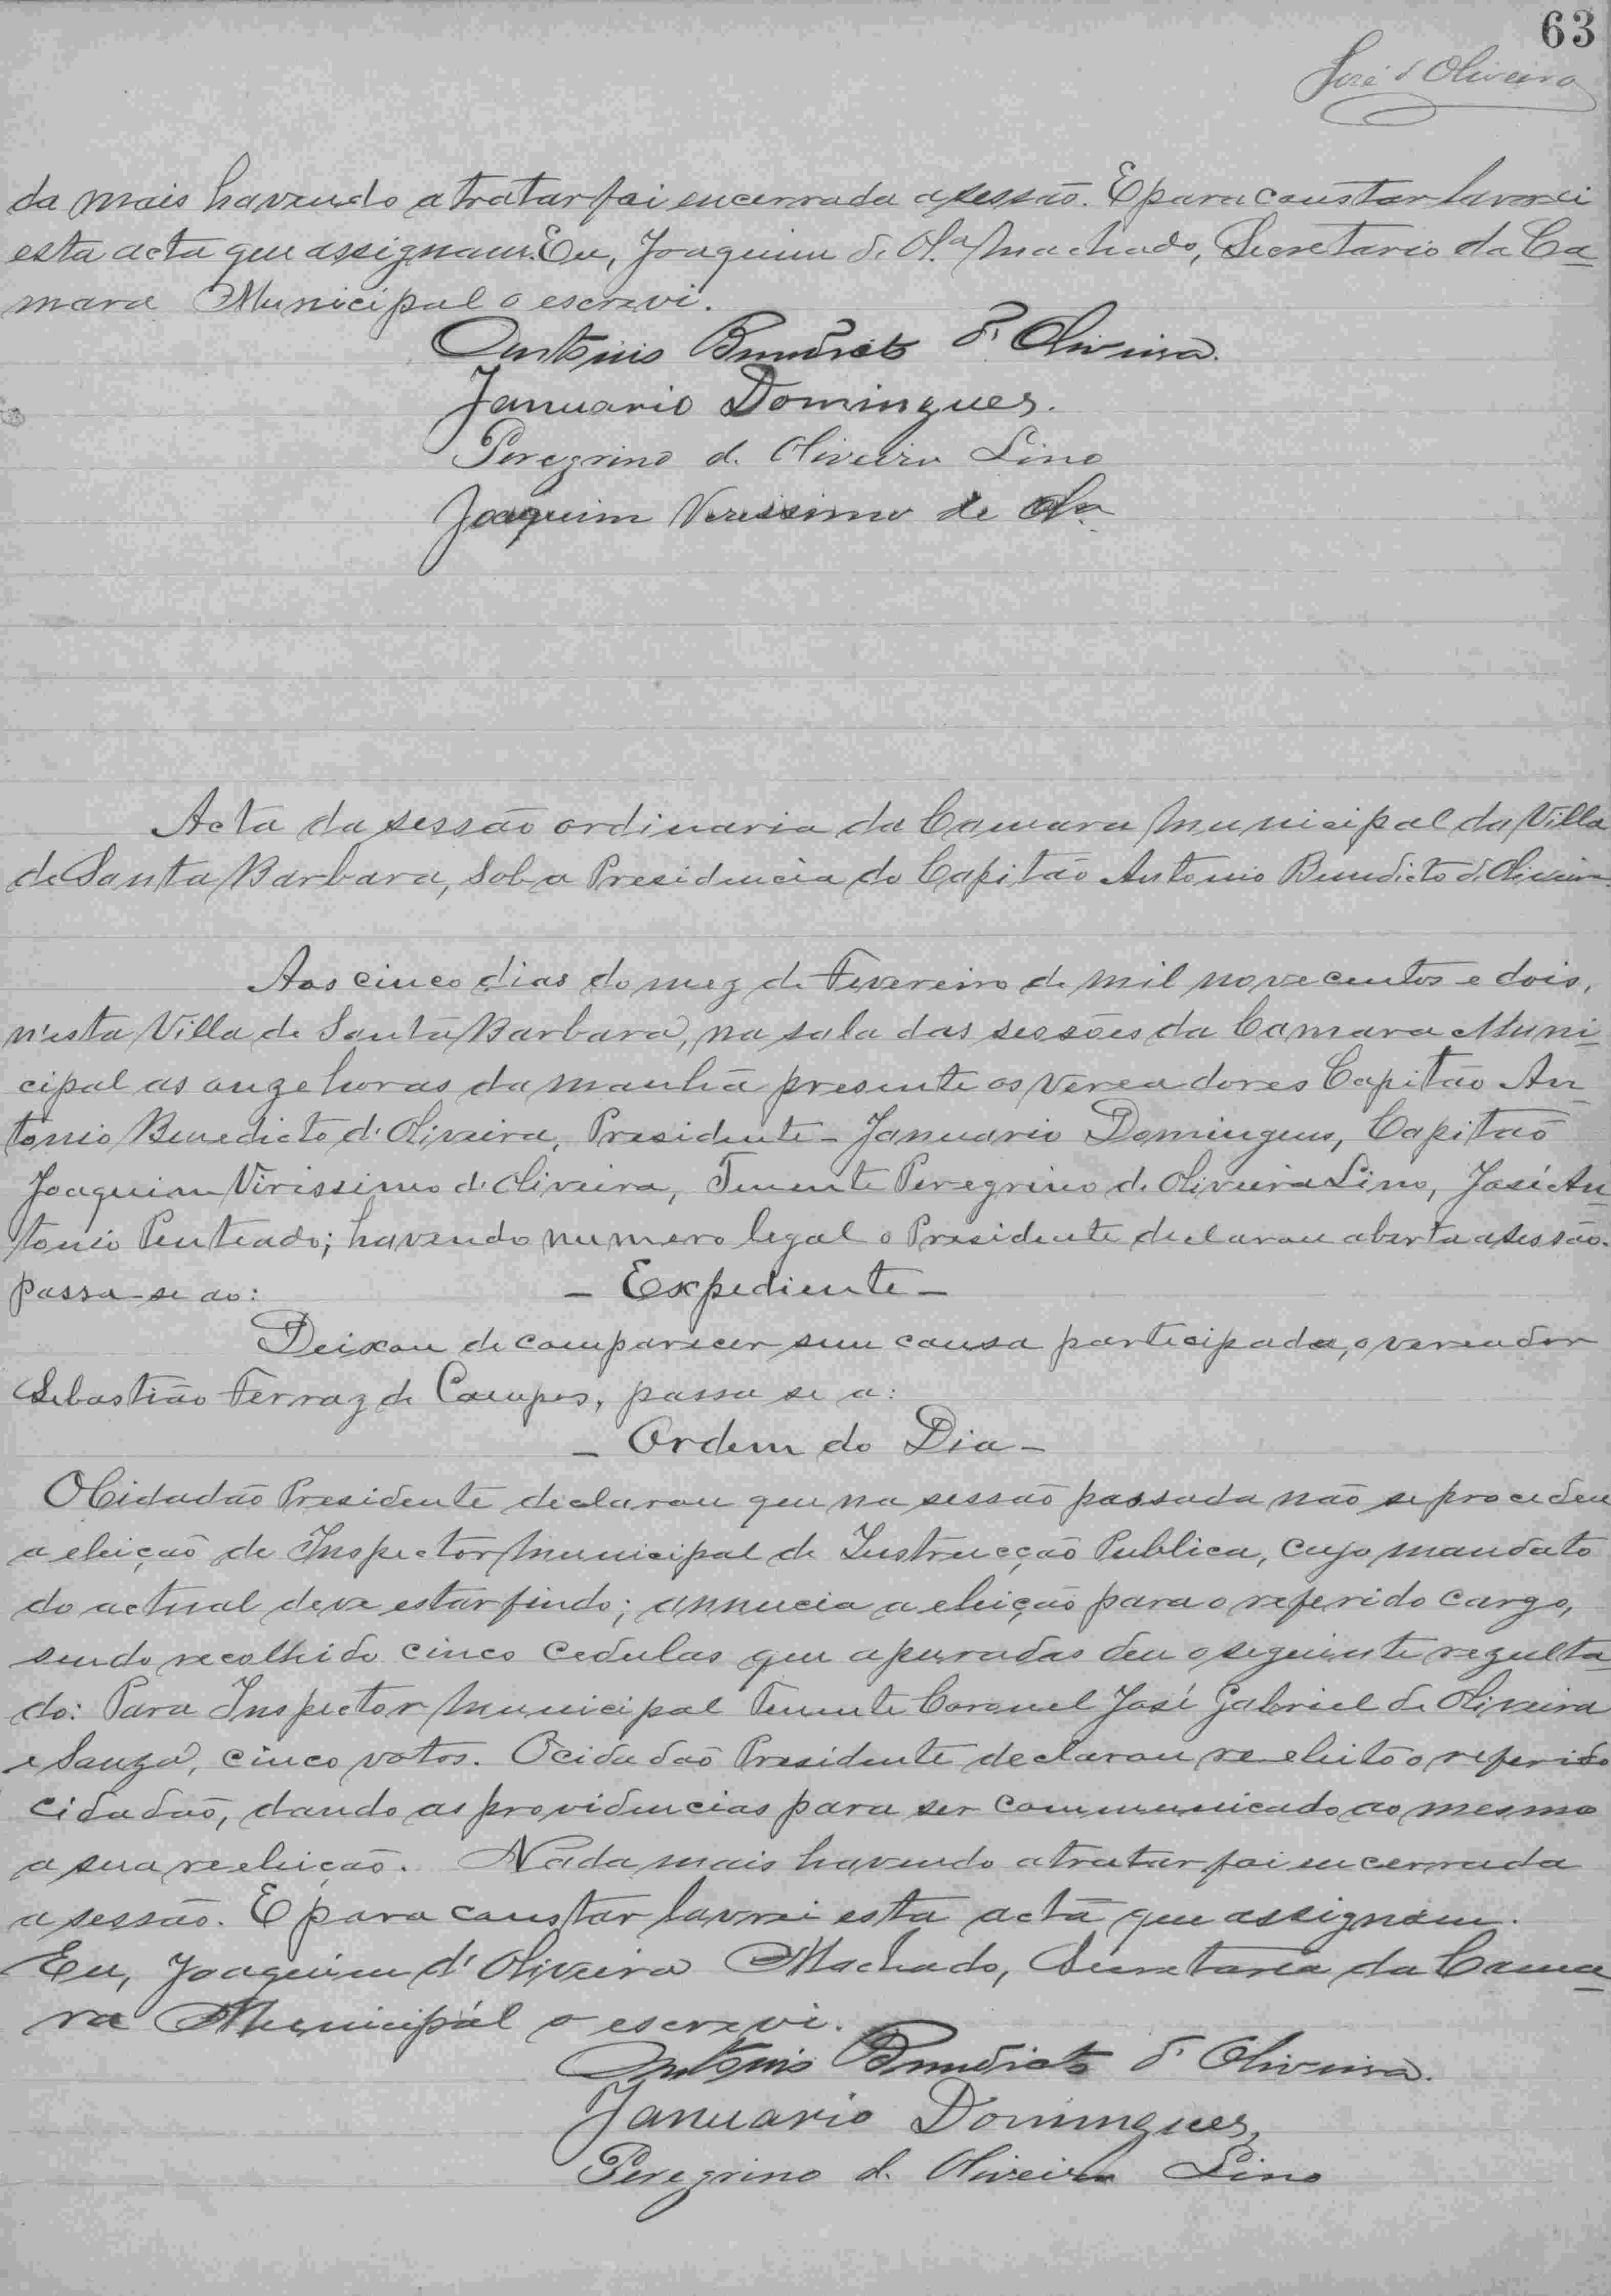 63
José d'Oliveira
da mais havendo a tratar foi encerrada a sessão. E para constar lavrei
esta acta que assignam. Eu, Joaquim de Olª Machado, Secretario da Ca-
mara Municipal o escrevi.
Antonio Benedicto d'Oliveira.
Januario Domingues.
Peregrino d. Oliveira Lino
Joaquim Verissimo de Olª
Acta da sessão ordinaria da Camara Municipal da Villa
de Santa Barbara, sob a Presidencia do Capitão Antonio Benedicto d'Oliveira.
Aos cinco dias do mez de Fevereiro de mil novecentos e dois,
n'esta Villa de Santa Barbara, na sala das sessões da Camara Muni-
cipal as onze horas da manhã presente os vereadores Capitão An-
tonio Benedicto d'Oliveira, Presidente - Januario Domingues, Capitão
Joaquim Virissimo d'Oliveira, Tenente Peregrino d. Oliveira Lino, José An-
tonio Penteado; havendo numero legal o Presidente declarou aberta a sessão.
passa-se ao: - Expediente -
Deixou de comparecer sem causa participada, o vereador
Sebastião Ferraz de Campos, passa se a:
- Ordem do Dia -
O Cidadão Presidente declarou que na sessão passada não se procedeu
a eleição de Inspector Municipal de Instrucção Publica, cujo mandato
do actual deve estar findo; annucia a eleição para o referido cargo,
sendo recolhido cinco cedulas que apuradas deu o seguinte rezulta-
do: Para Inspector Municipal Tenente Coronel José Gabriel de Oliveira
e Souza, cinco votos. O cidadão Presidente declarou reeleito o referido
cidadão, dando as providencias para ser communicado ao mesmo
a sua reeleição. Nada mais havendo a tratar foi encerrada
a sessão. E para constar lavrei esta acta que assignam.
Eu, Joaquim d'Oliveira Machado, Secretario da Cama-
ra Municipal o escrevi.
Antonio Benedicto d'Oliveira.
Januario Domingues,
Peregrino d. Oliveira Lino